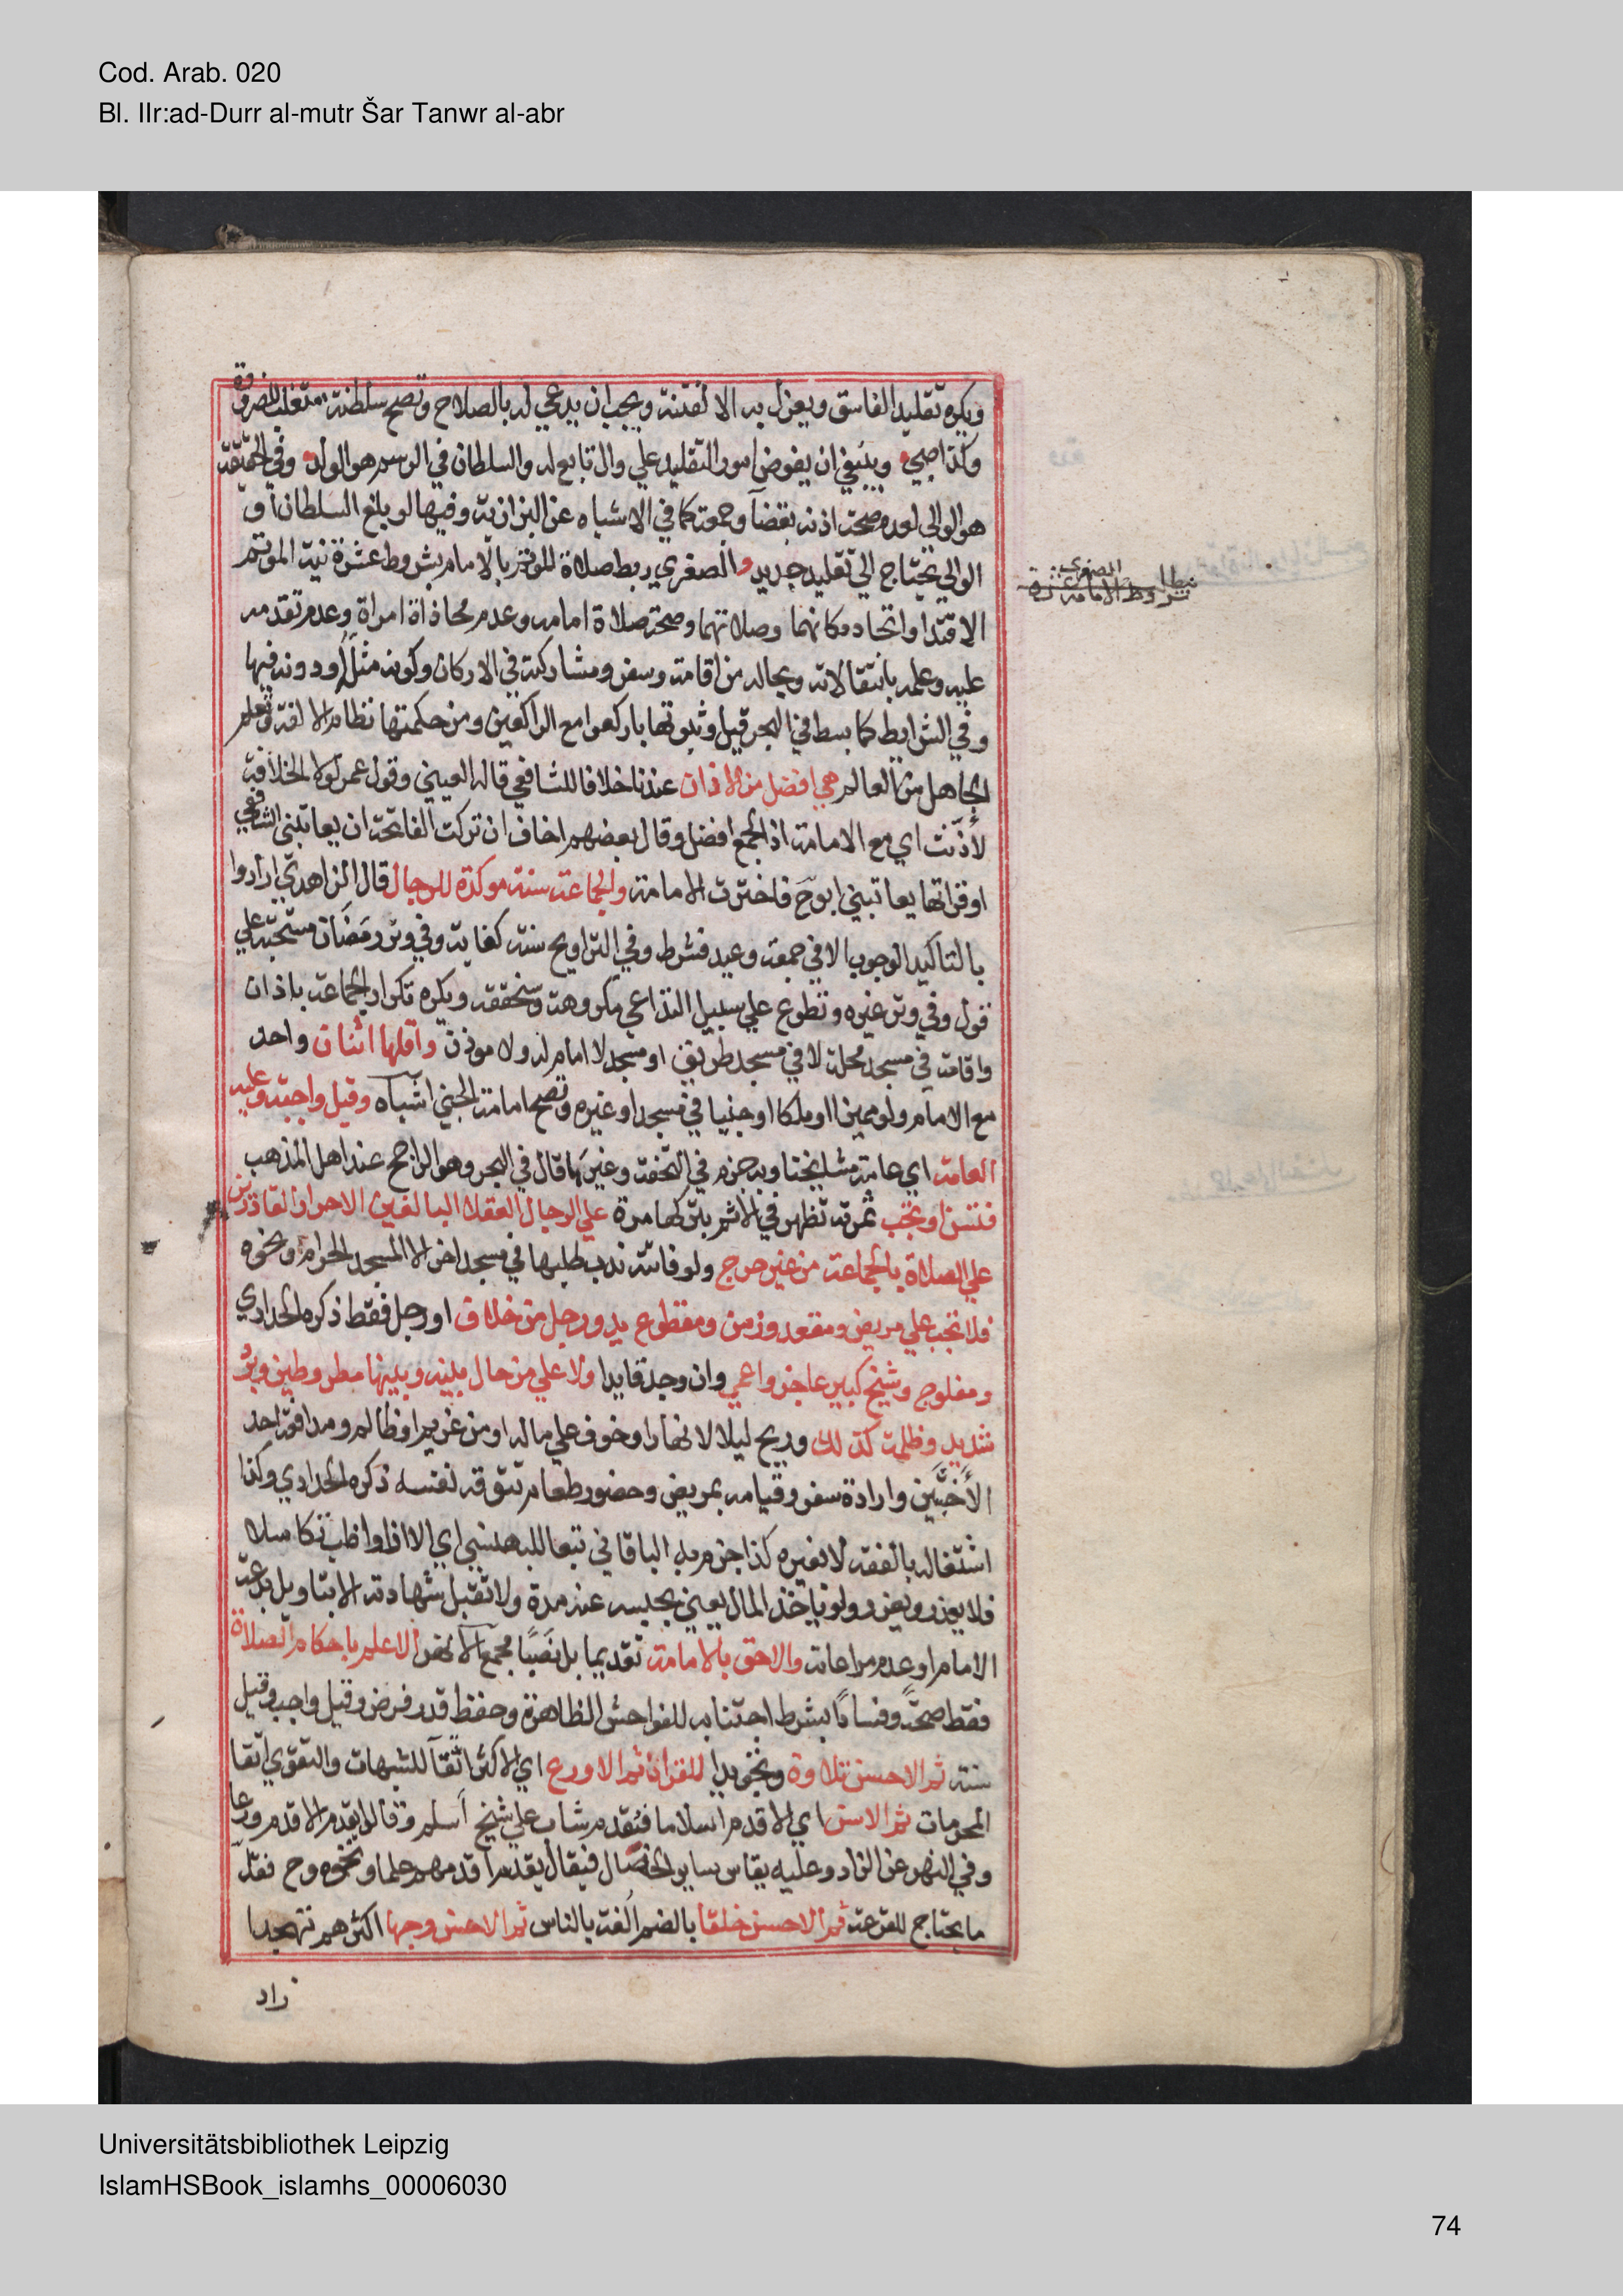 Cod. Arab. 020
Bl. IIr:ad-Durr al-mutr Šar Tanwr al-abr
ويكره تقليد الفاسق ويعزل به الا لفتنة ويجب ان يدعي له بالصلاح وتصح سلطنة متغلب للضرورة
وكذا صبي وينبغي ان يفوض امور التقليد علي وال تابع له والسلطان في الرسم هو الولد وفي الحقيقة
هو الوالي لعدم صحة اذنه بقضآ وجمعة كما في الاشباه عن البزازية وفيها لو بلغ السلطان او
الوالي يحتاج الي تقليد جديد والصغري ربط صلاة الموتم بالامام بشروط عشرة نية الموتم
شروط الامامة الصغري
الاقتدا واتحاد مكانهما وصلاتهما وصحة صلاة امامه وعدم محاذاة امراة وعدم تقدمه
عليه وعلمه بانتقالاته وبحاله من اقامة وسفر ومشاركته في الاركان وكونه مثله اودونه فيها
وفي الشرايط كما بسط في البحر قيل وثبوتها باركعوا مع الراكعين ومن حكمتها نظام الالفة وتعلم
الجاهل من العالم هي افضل من الاذان عندنا خلافا للشافعي قاله العيني وقول عمر لولا الخلافة
لأذّنت اي مع الامامة اذ الجمع افضل وقال بعضهم اخاف ان تركت الفاتحة ان يعاتبني الشافعي
او قراتها يعاتبني ابو ح فاخترت الامامة والجماعة سنة موكدة للرجال قال الزاهدي ارادوا
بالتاكيد الوجوب الا في جمعة وعيد فشرط وفي التراويح سنة كفاية وفي وتر رمضان مستحبة علي
قول وفي وتر غيره وتطوع علي سبيل التداعي مكروهة وسنحققه ويكره تكرار الجماعة باذان
واقامة في مسجد محلة لا في مسجد طريق او مسجد لا امام له ولا موذن واقلها اثنان واحد
مع الامام ولو مميزا او ملكا او جنيا في مسجد او غيره وتصح امامة الجني اشباه وقيل واجبة وعليه
العامة اي عامة مشايخنا وبه جزم في التحفة وغيرها قال في البحر وهو الراجح عند اهل المذهب
فتسن او تجب ثمرته تظهر في الاثم بتركها مرة علي الرجال العقلا البالغين الاحرار القادرين
علي الصلاة بالجماعة من غير حرج ولو فاتته ندب طلبها في مسجد اخر الا المسجد الحرام ونحوه
فلا تجب علي مريض ومقعد وزمن ومقطوع يد ورجل من خلاف او رجل فقط ذكره الحدادي
ومفلوج وشيخ كبير عاجز واعمي وان وجد قايدا ولا علي من حال بينه وبينها مطر وطين وبرد
شديد وظلمة كذلك وريح ليلا لا نهارا وخوف علي ماله او من غريم او ظالم ومدافعة احد
الأخبثين وارادة سفر وقيامه بمريض وحضور طعام تتوقه نفسه ذكره الحدادي وكذا
اشتغاله بالفقه لا بغيره كذا جزم به الباقاني تبعا للبهنسي اي الا اذا واظب تكاسلا
فلا يعذر ويعزر ولو باخذ المال يعني بحبسه عنه مدة ولا تقبل شهادته الا بتاويل بدعة
الامام او عدم مراعاته والاحق بالامامة تقديما بل نصبًا مجمع الانهر الاعلم باحكام الصلاة
فقط صحّة وفسادًا بشرط اجتنابه للفواحش الظاهرة وحفظ قدر فرض وقيل واجب وقيل
سنة ثم الاحسن تلاوة وتجويدا للقران ثم الاورع اي الاكثر اتقآ للشبهات والتقوي اتقا
المحرمات ثم الاسن اي الاقدم اسلاما فيُقدم شاب علي شيخ اسلم وقالوا يقدم الاقدم ورعا
وفي النهر عن الزاد وعليه يقاس ساير الخصال فيقال يقدم اقدمهم علما ونحوه وح فقلّ
ما يحتاج للقرعة ثم الاحسن خلقا بالضم الفة بالناس ثم الاحسن وجها اكثرهم تهجدا
زاد
Universitätsbibliothek Leipzig
IslamHSBook_islamhs_00006030
74